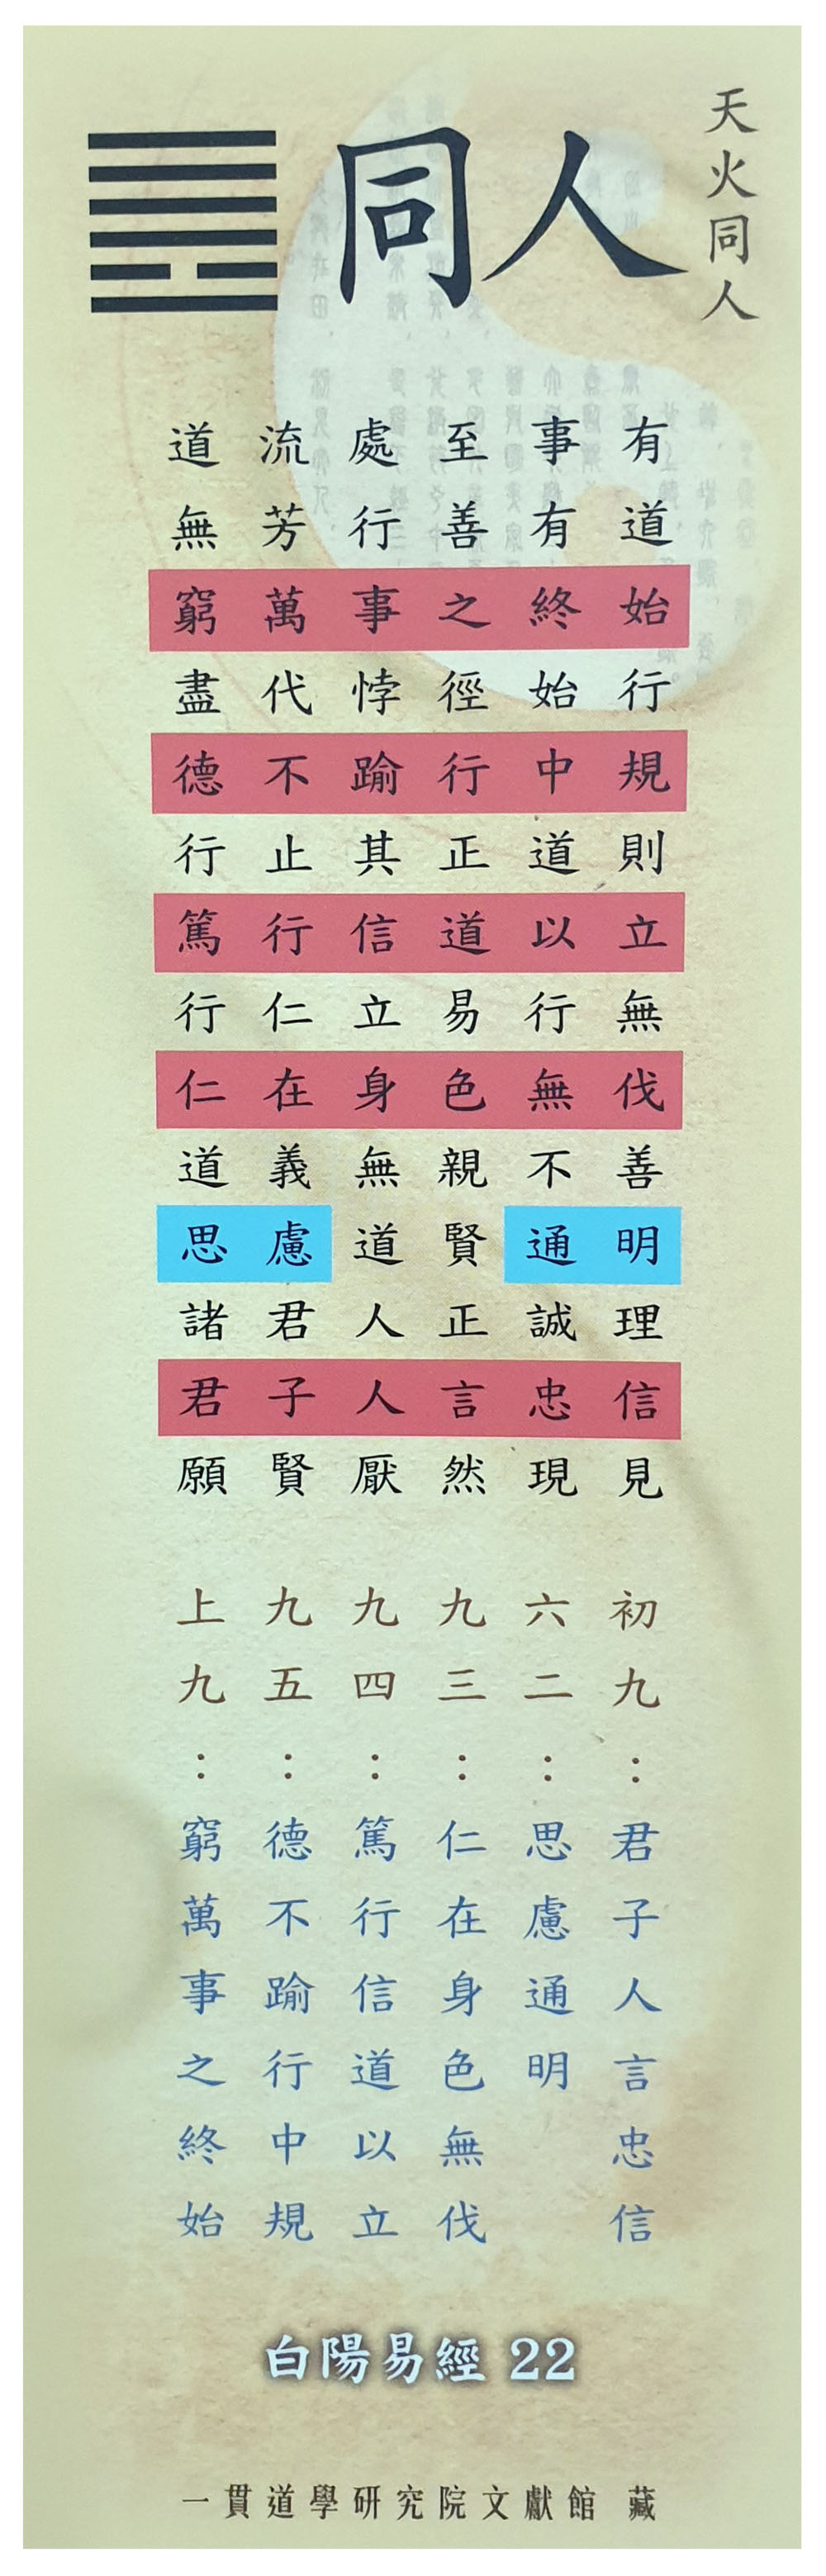 天火同人
同人
有道始行規則立無伐善明理信見
事有終始中道以行無不通誠忠現
至善之徑行正道易色親賢正言然
處行事悖踰其信立身無道人人厭
流芳萬代不止行仁在義慮君子賢
道無窮盡德行篤行仁道思諸君願
初九：君子人言忠信
六二：思慮通明
九三：仁在身色無伐
九四：篤行信道以立
九五：德不踰行中規
上九：窮萬事之終始
白陽易經 22
一貫道學研究院文獻館 藏